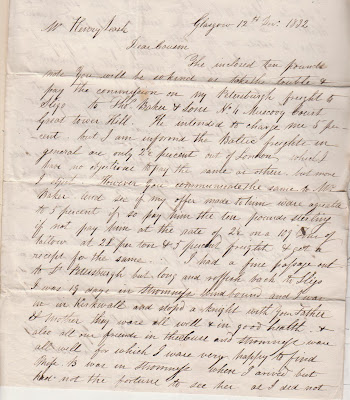 Mr Henry Leask Glasgow 12th Decr 1832
Dear Cousin
The inclosed ten pounds
note you will be so kind as take the trouble &
pay the commission on my Petersburgh freight to
Sligo to Mr Baker & Sons No 4 Muscovy Court
Great Tower Hill. He intended to charge me 5 per
cent but I am informd the Baltic freights in
general are only 2½ percent out of London, which I
have no objections to pay the same as others but more
I object. However you communicate the same to Mr
Baker and see if my offer made to him were agreeable
to 5 percent if so pay him the ten pounds sterling
if not pay him at the rate of 2½ on a 109 tons of
tallow at per ton & 5 percent freight & get a
receipt for the same. I had a fine passage out
to St Petersburgh but long and rough back to Sligo
I was 19 days in Stromness Wind bound and I was
in Kirkwall and stopd a knight with your Father
& Mother they were all well & in good health &
also all our friends in and Stromness were
all well, for which I ware very happy to find
Miss B was in Stromness when I arived but
had not the fortune to see her as I did not